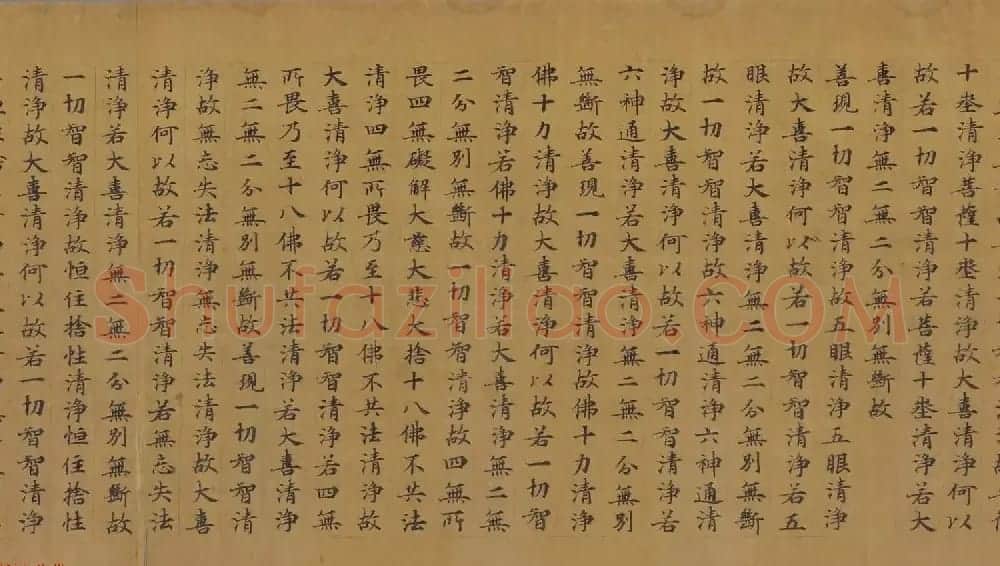 十埊清淨菩薩十埊清淨故大喜清淨何以
故若一切智智清淨若菩薩十埊清淨若大
喜清淨無二無二分無別無斷故
善現一切智智清淨故五眼清淨五眼清淨
故大喜清淨何以故若一切智智清淨若五
眼清淨若大喜清淨無二無二分無別無斷
故一切智智清淨故六神通清淨六神通清
淨故大喜清淨何以故若一切智智清淨若
六神通清淨若大喜清淨無二無二分無別
無斷故善現一切智智清淨故佛十力清淨
佛十力清淨故大喜清淨何以故若一切智
智清淨若佛十力清淨若大喜清淨無二無
二分無別無斷故一切智智清淨故四無所
畏四無礙解大慈大悲大捨十八佛不共法
清淨四無所畏乃至十八佛不共法清淨故
大喜清淨何以故若一切智智清淨若四無
所畏乃至十八佛不共法清淨若大喜清淨
無二無二分無別無斷故善現一切智智清
淨故無忘失法清淨無忘失法清淨故大喜
清淨何以故若一切智智清淨若無忘失法
清淨若大喜清淨無二無二分無別無斷故
一切智智清淨故恒住捨性清淨恒住捨性
清淨故大喜清淨何以故若一切智智清淨
Shufaziliao.COM